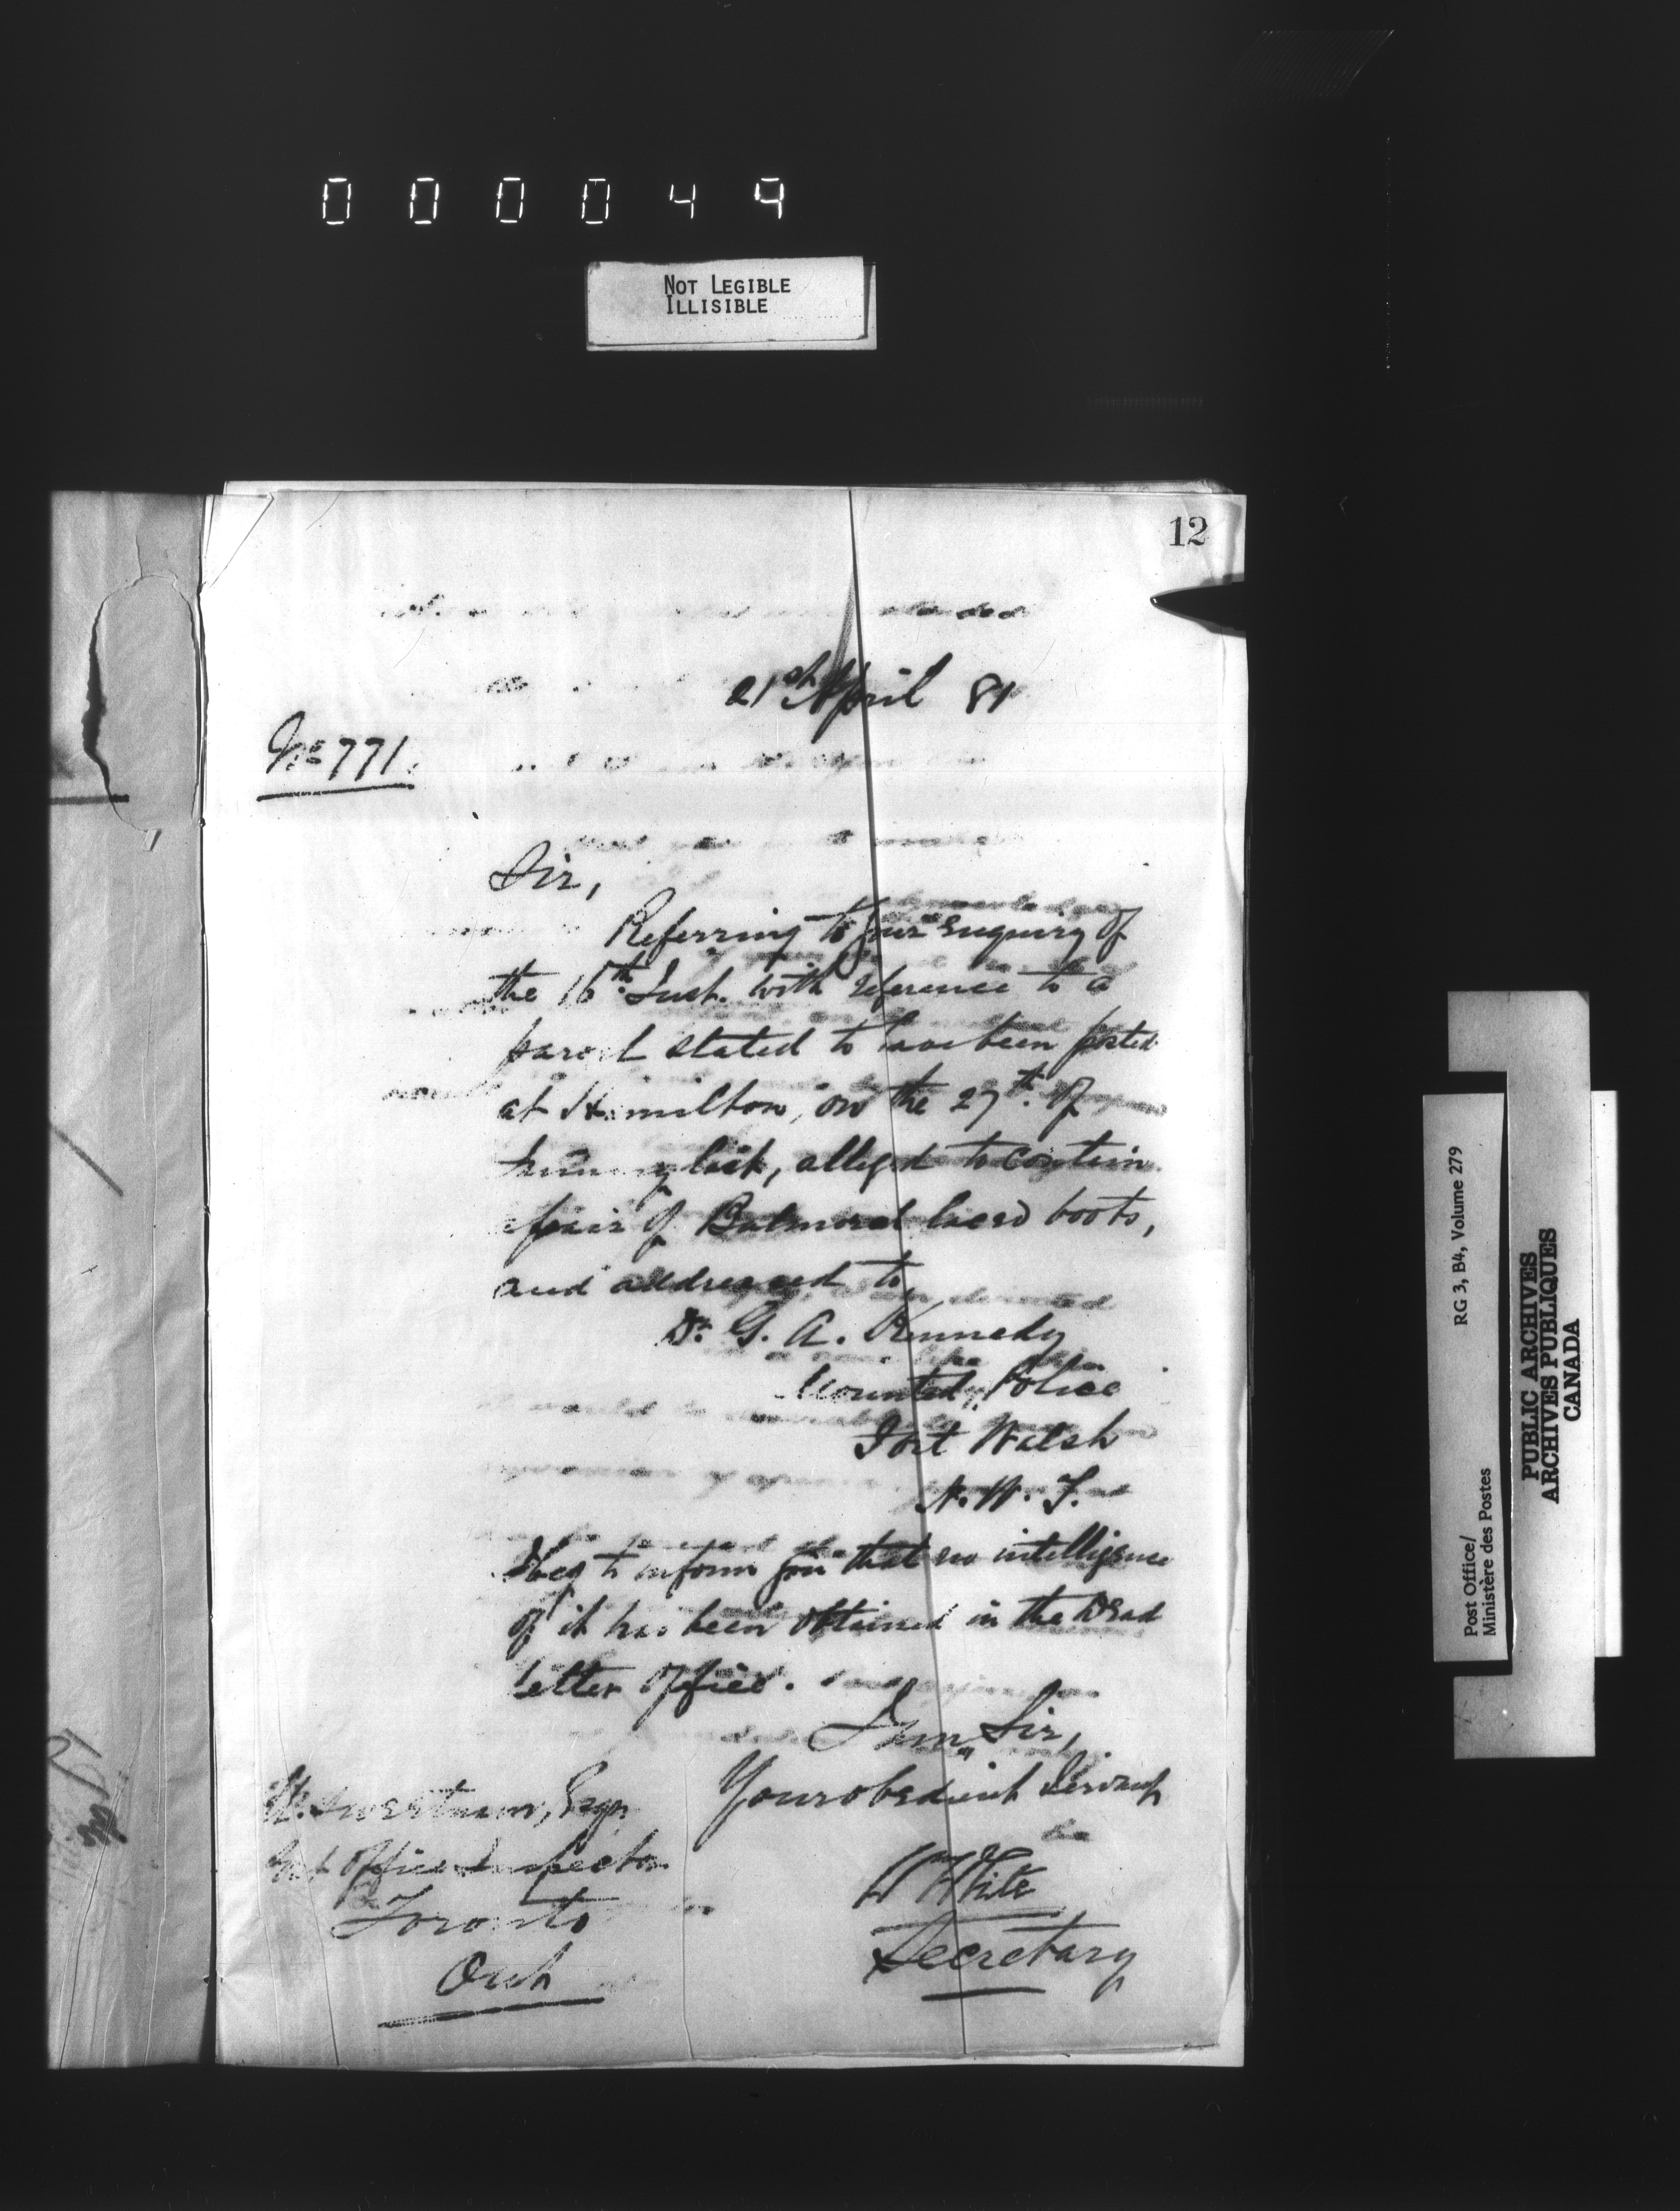 000049
NOT LEGIBLE
ILLISIBLE
12
21st April 81
No 771.
Sir,
Referring to your enquiry of
the 16th Inst. with reference to a
parcel stated to have been posted
at Hamilton, on the 27th of
last, alleged to contain
a pair of Balmoral laced boots,
and addressed to
Dr. G. A. Kennedy
Mounted Police
Fort Walsh
N. W. T.
I beg to inform you that no intelligence
of it has been obtained in the Dead
Letter Office.
I am, Sir,
Your obedient Servant
W White
Secretary
Sweetnam, Esqr
Post Office Inspector
Toronto
Ont
Post Office/
Ministère des Postes
RG 3, B4, Volume 279
PUBLIC ARCHIVES
ARCHIVES PUBLIQUES
CANADA